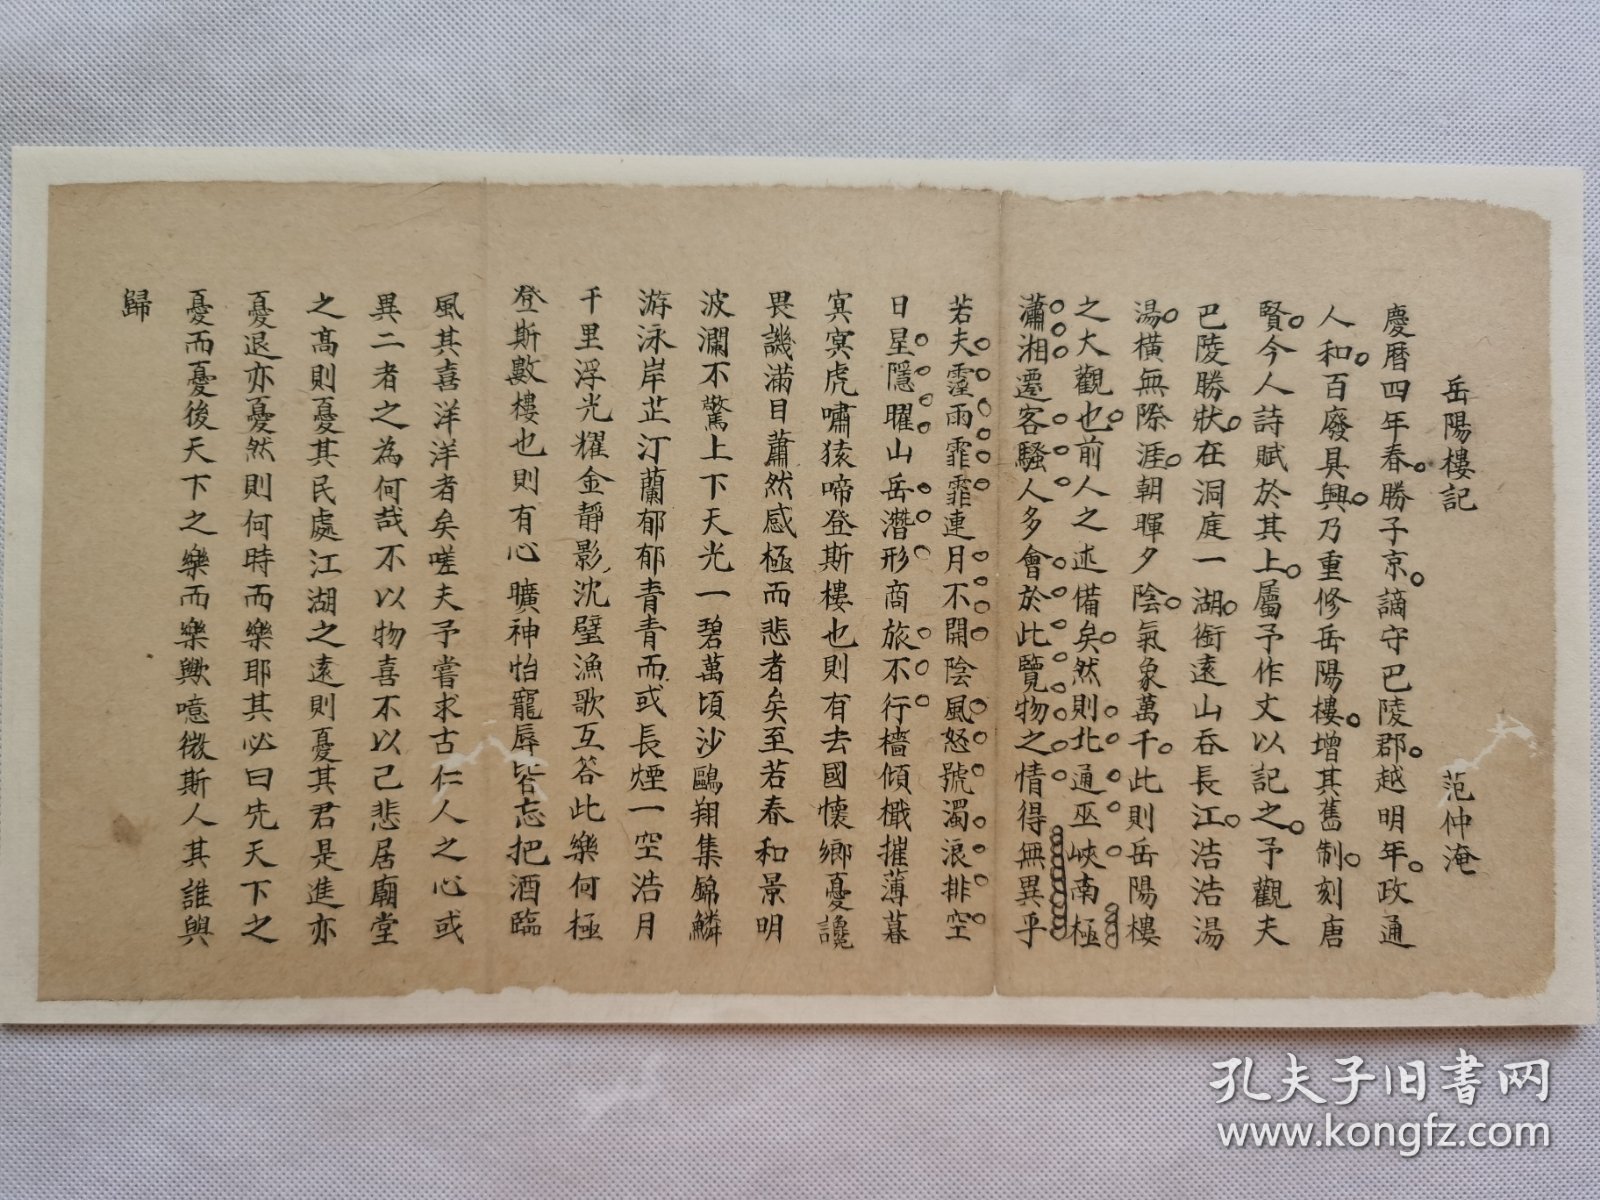 岳陽樓記 范仲淹
慶曆四年春勝子京謫守巴陵郡越明年政通
人和百廢具興乃重修岳陽樓增其舊制刻唐
賢今人詩賦於其上屬予作文以記之予觀夫
巴陵勝狀在洞庭一湖銜遠山吞長江浩浩湯
湯橫無際涯朝暉夕陰氣象萬千此則岳陽樓
之大觀也前人之述備矣然則北通巫峽南極
瀟湘遷客騷人多會於此覽物之情得無異乎
若夫霪雨霏霏連月不開陰風怒號濁浪排空
日星隱曜山岳潛形商旅不行檣傾檝摧薄暮
冥冥虎嘯猿啼登斯樓也則有去國懷鄉憂讒
畏譏滿目蕭然感極而悲者矣至若春和景明
波瀾不驚上下天光一碧萬頃沙鷗翔集錦鱗
游泳岸芷汀蘭郁郁青青而或長煙一空浩月
千里浮光耀金靜影沈璧漁歌互答此樂何極
登斯數樓也則有心曠神怡寵辱皆忘把酒臨
風其喜洋洋者矣嗟夫予嘗求古仁人之心或
異二者之為何哉不以物喜不以己悲居廟堂
之高則憂其民處江湖之遠則憂其君是進亦
憂退亦憂然則何時而樂耶其必曰先天下之
憂而憂後天下之樂而樂歟噫微斯人其誰與
歸
孔夫子旧書网
www.kongfz.com